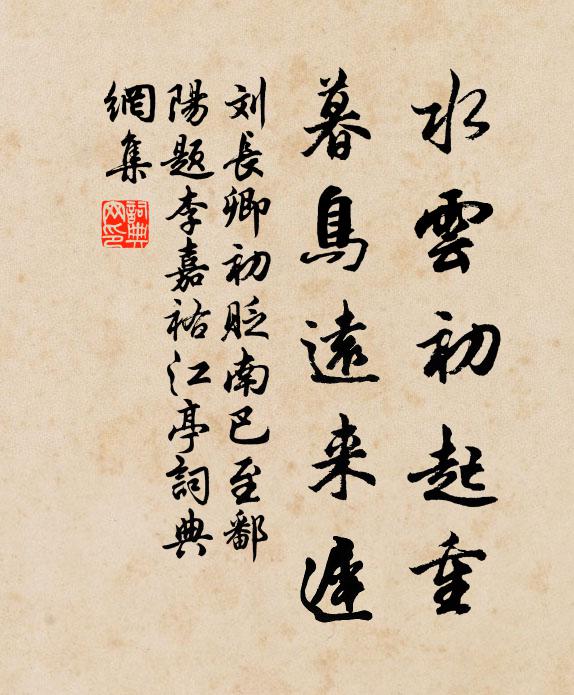 水雲初起重
暮鳥遠来遲
刘長卿初貶南巴至鄱
陽題李嘉祐江亭詞典
網集
詞典網印